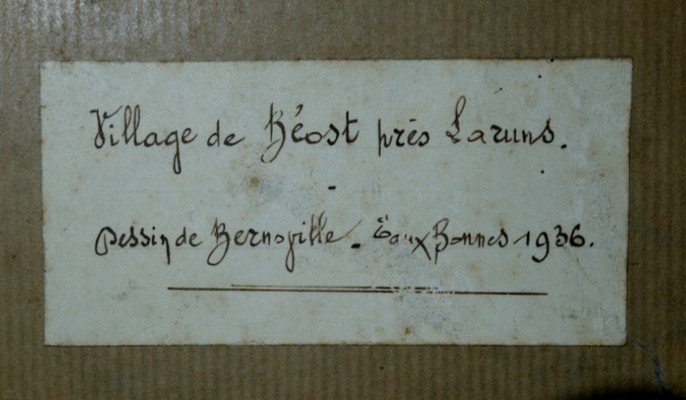 Village de Béost près Laruns.
-
Dessin de Bernoville. Eaux Bonnes 1936.